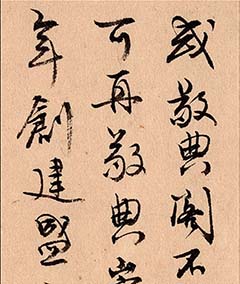 或敬典閣不
可再敬典
年創建盛